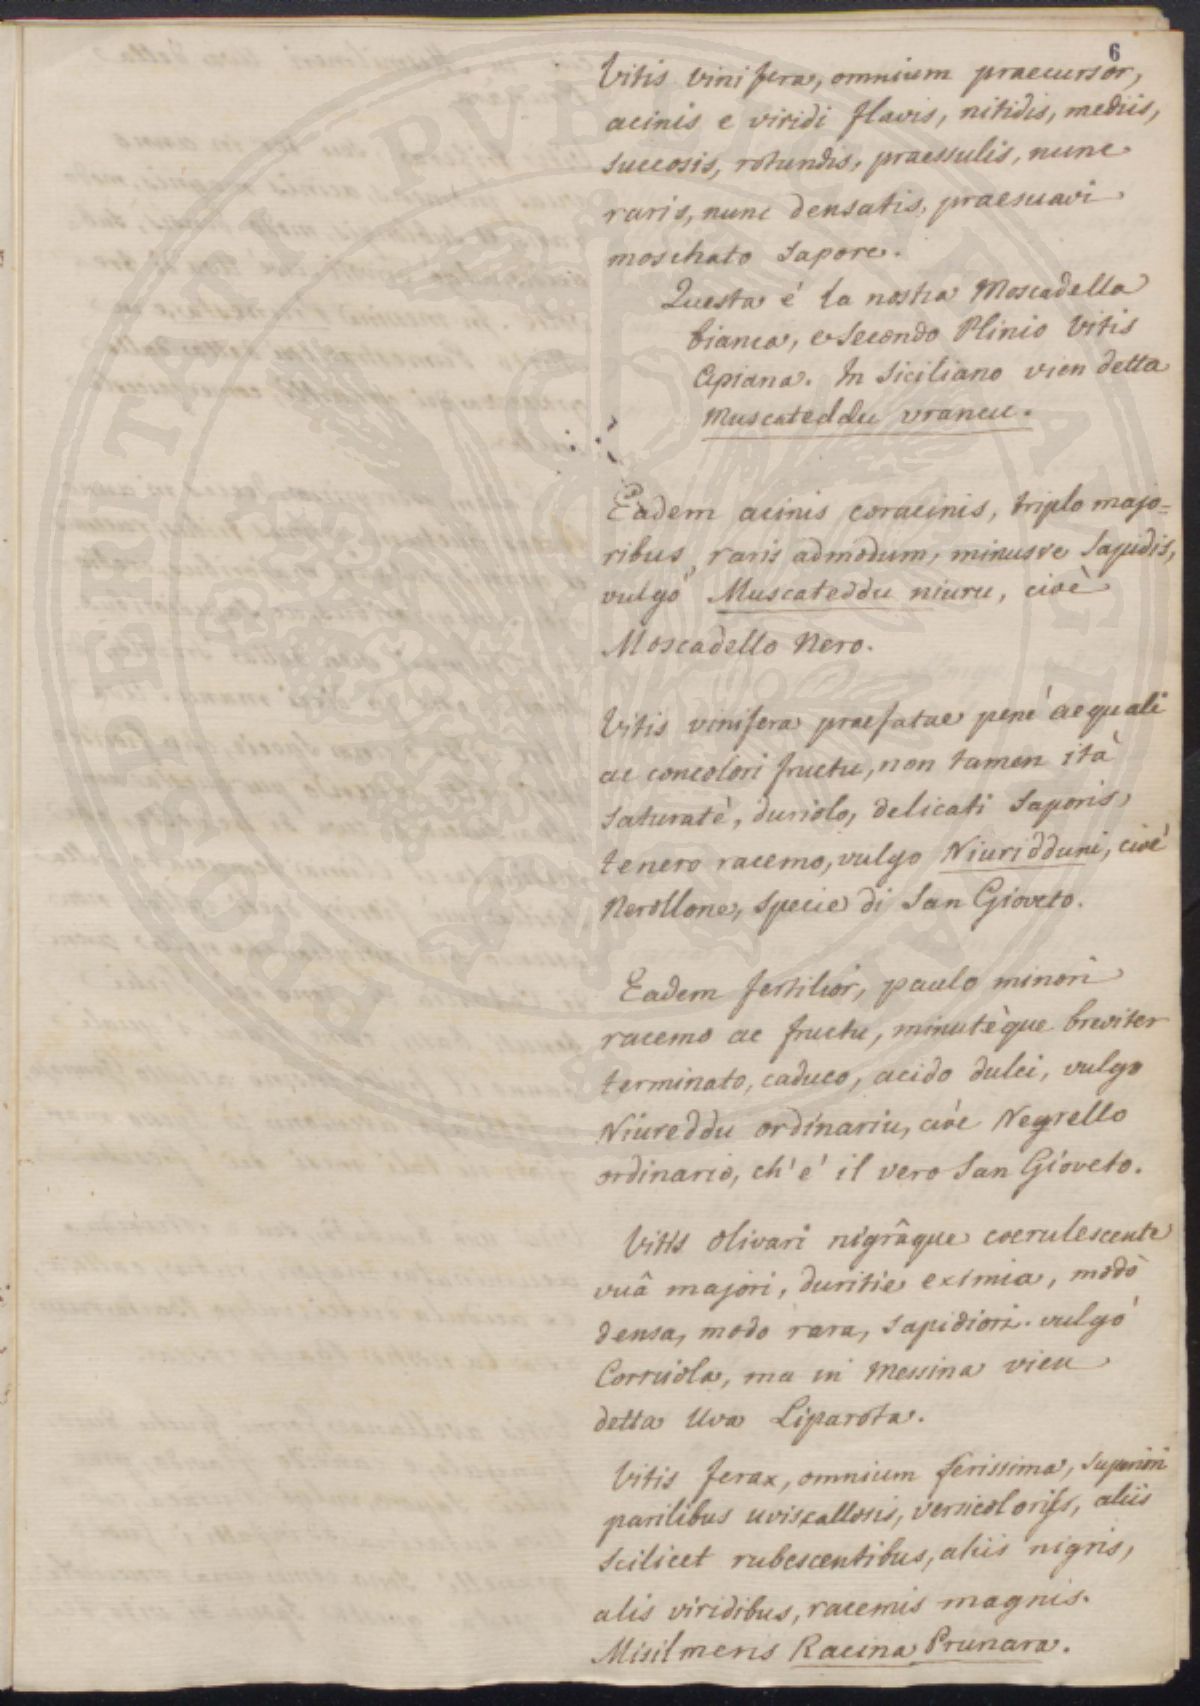 6
Vitis vinifera, omnium praecursor,
acinis e viridi flavis, nitidis, mediis,
succosis, rotundis, praessulis, nunc
raris, nunc densatis, praesuavi
moschato sapore.
Questa é la nostra Moscadella
bianca, e secondo Plinio Vitis
Apiana. In Siciliano vien detta
Muscateddu vrancu.
Eadem acinis coracinis, triplo majo=
ribus, raris admodum, minusve sapidis,
vulgò Muscateddu niuru, cioè
Moscadello Nero.
Vitis vinifera praefatae penè aequali
ac concolori fructu, non tamen ità
saturatè, duriolo, delicati saporis,
tenero racemo, vulgo Niuridduni, cioè
Nerollone, specie di San Gioveto.
Eadem fertilior, paulo minori
racemo ac fructu, minutèque breviter
terminato, caduco, acido dulci, vulgo
Niureddu ordinariu, cioè Negrello
ordinario, ch'e' il vero San Gioveto.
Vitis olivari nigrâque coerulescente
vuâ majori, duritie eximia, modò
densa, modo rara, sapidiori. vulgó
Corriola, ma in Messina vien
detta Uva Liparota.
Vitis ferax, omnium serissima, superiori
parilibus uvis callosis, versicoloribs, aliis
scilicet rubescentibus, aliis nigris,
alis viridibus, racemis magnis.
Misilmeris Racina Prunara.
PROSPERITATI PVBLICAE